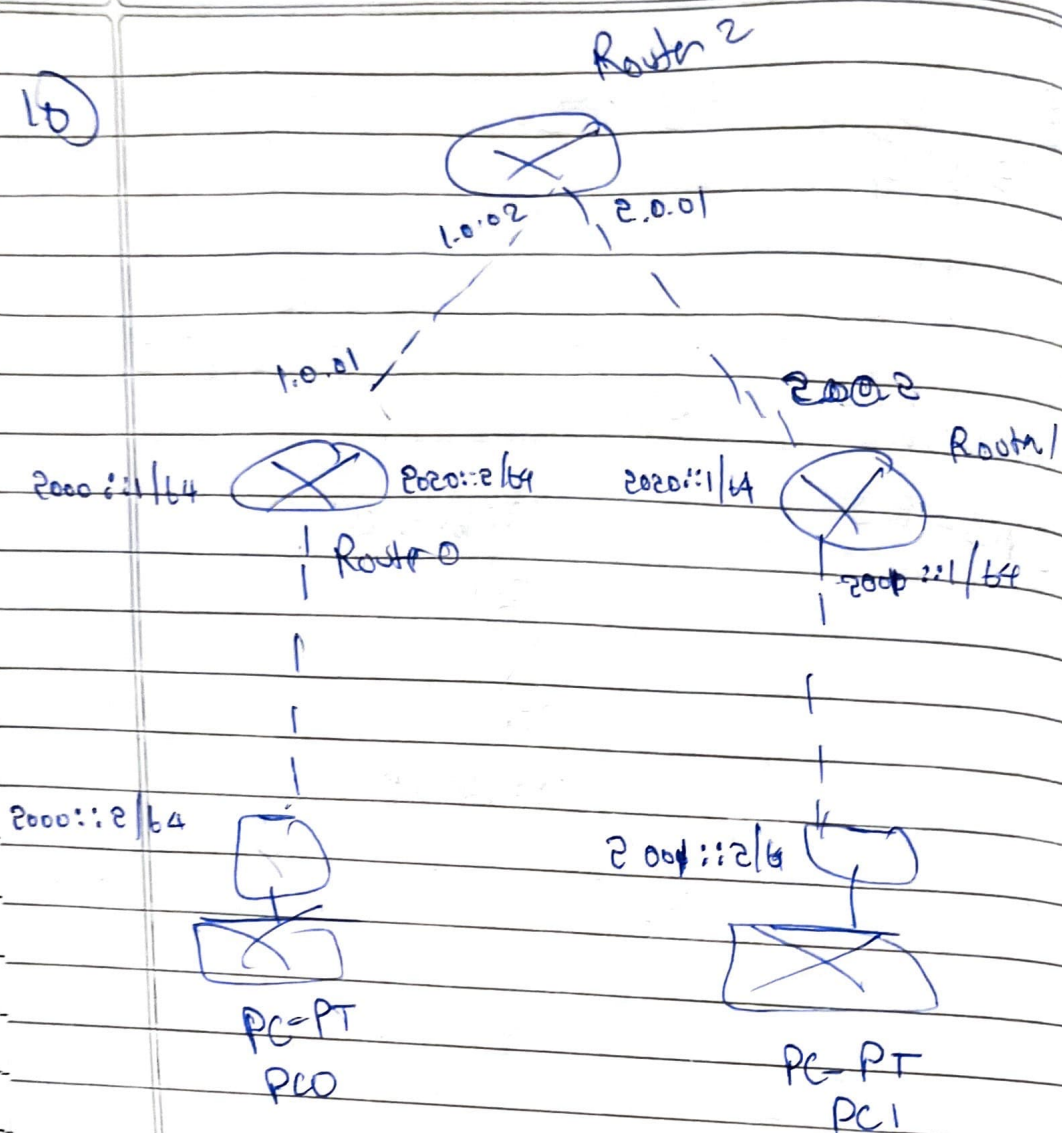 10
Router 2
1.0.02
2.0.01
1.0.01
2002
Router 1
2000::1/64
2020::2/64
2020::1/64
Router 0
::1/64
2000::2/64
PC-PT
PC0
PC-PT
PC1